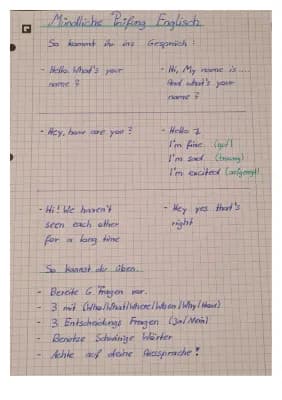 Mündliche Prüfung Englisch
So kommt ihr ins Gespräch:
- Hello. What's your name?
- Hi, My name is .... And what's your name?
- Hey, how are you?
- Hello
I'm fine (gut)
I'm sad (traurig)
I'm excited (aufgeregt)
- Hi! We haven't seen each other for a long time
- Hey yes that's right
So kannst du üben.
- Bereite 6 Fragen vor.
- 3 mit (Who/What/Where/When/Why/How)
- 3 Entscheidungs Fragen (Ja/Nein)
- Benutze Schwierige Wörter
- Achte auf deine Aussprache!